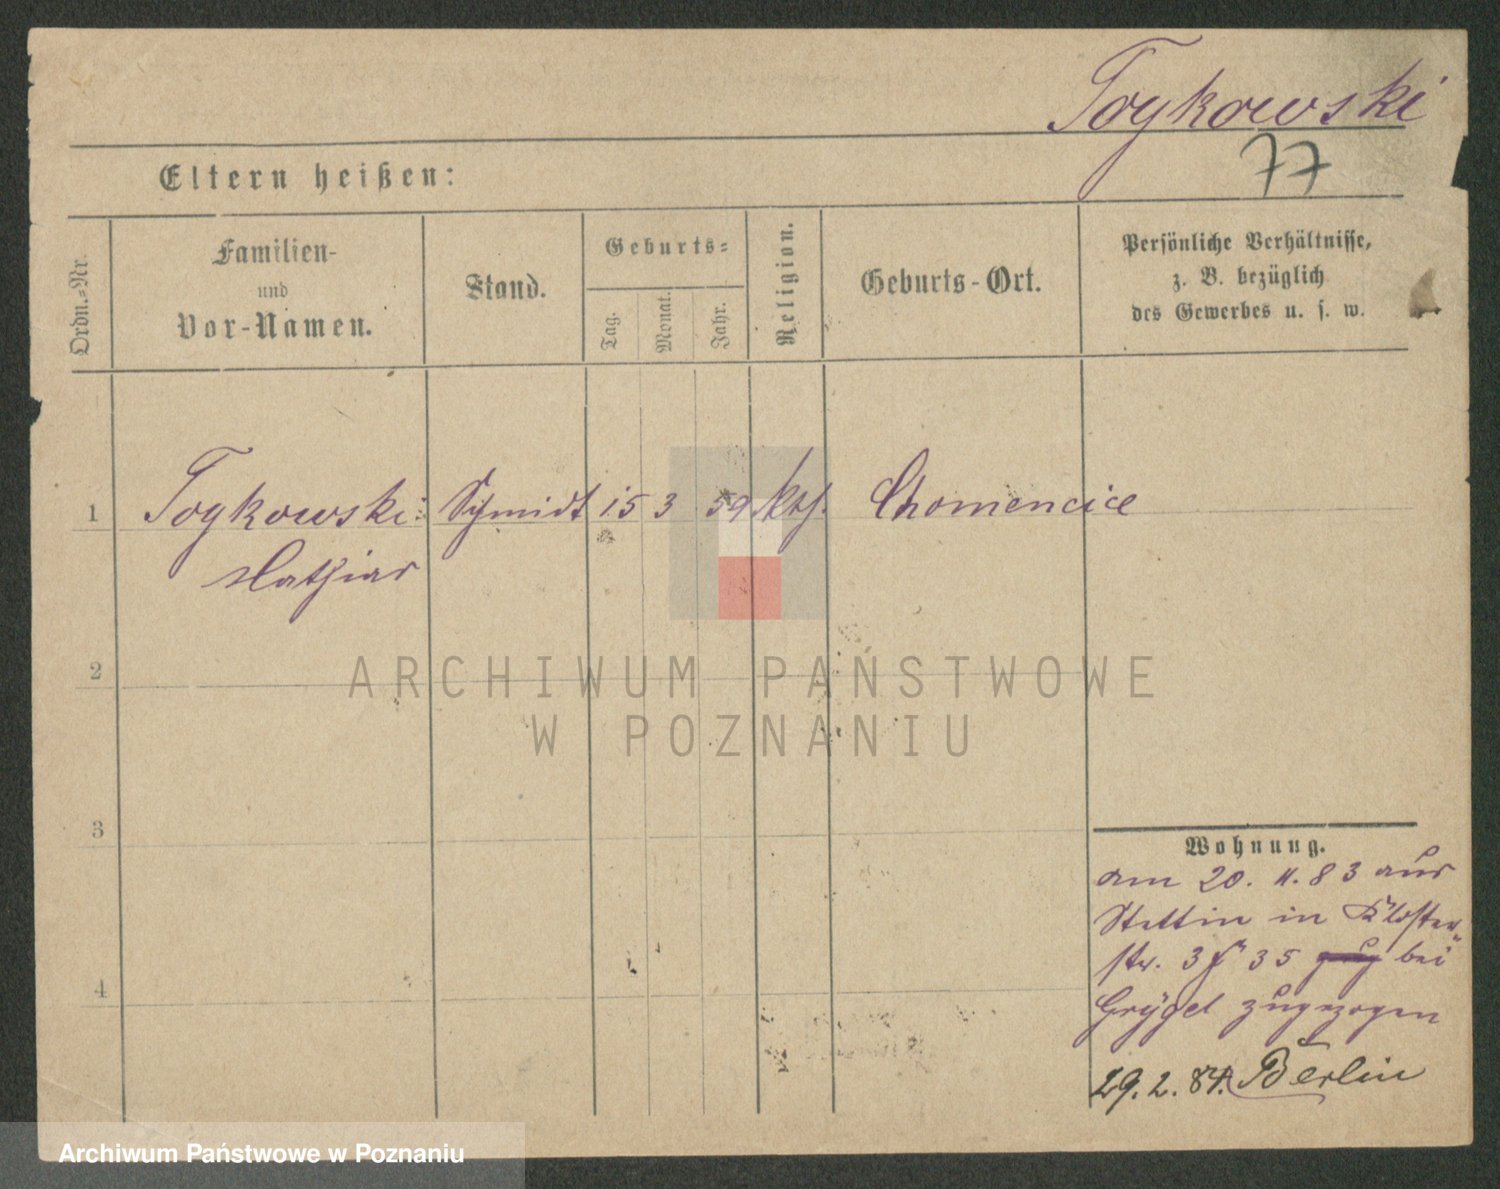 Toykowski
77
Eltern heißen:
Ordn.-Nr.
Familien-
und
Vor-Namen.
Stand.
Geburts-
Tag.
Monat.
Jahr.
Religion.
Geburts-Ort.
Persönliche Verhältnisse,
z. B. bezüglich
des Gewerbes u. s. w.
1 Toykowski Schmidt 15 3 59 kth. Chomencice
Mathias
2
ARCHIWUM PAŃSTWOWE
W POZNANIU
3
Wohnung.
am 20. 11. 83 aus
Stettin in Kloster
str. 35 bei
zugezogen
4
29. 2. 84. Berlin
Archiwum Państwowe w Poznaniu